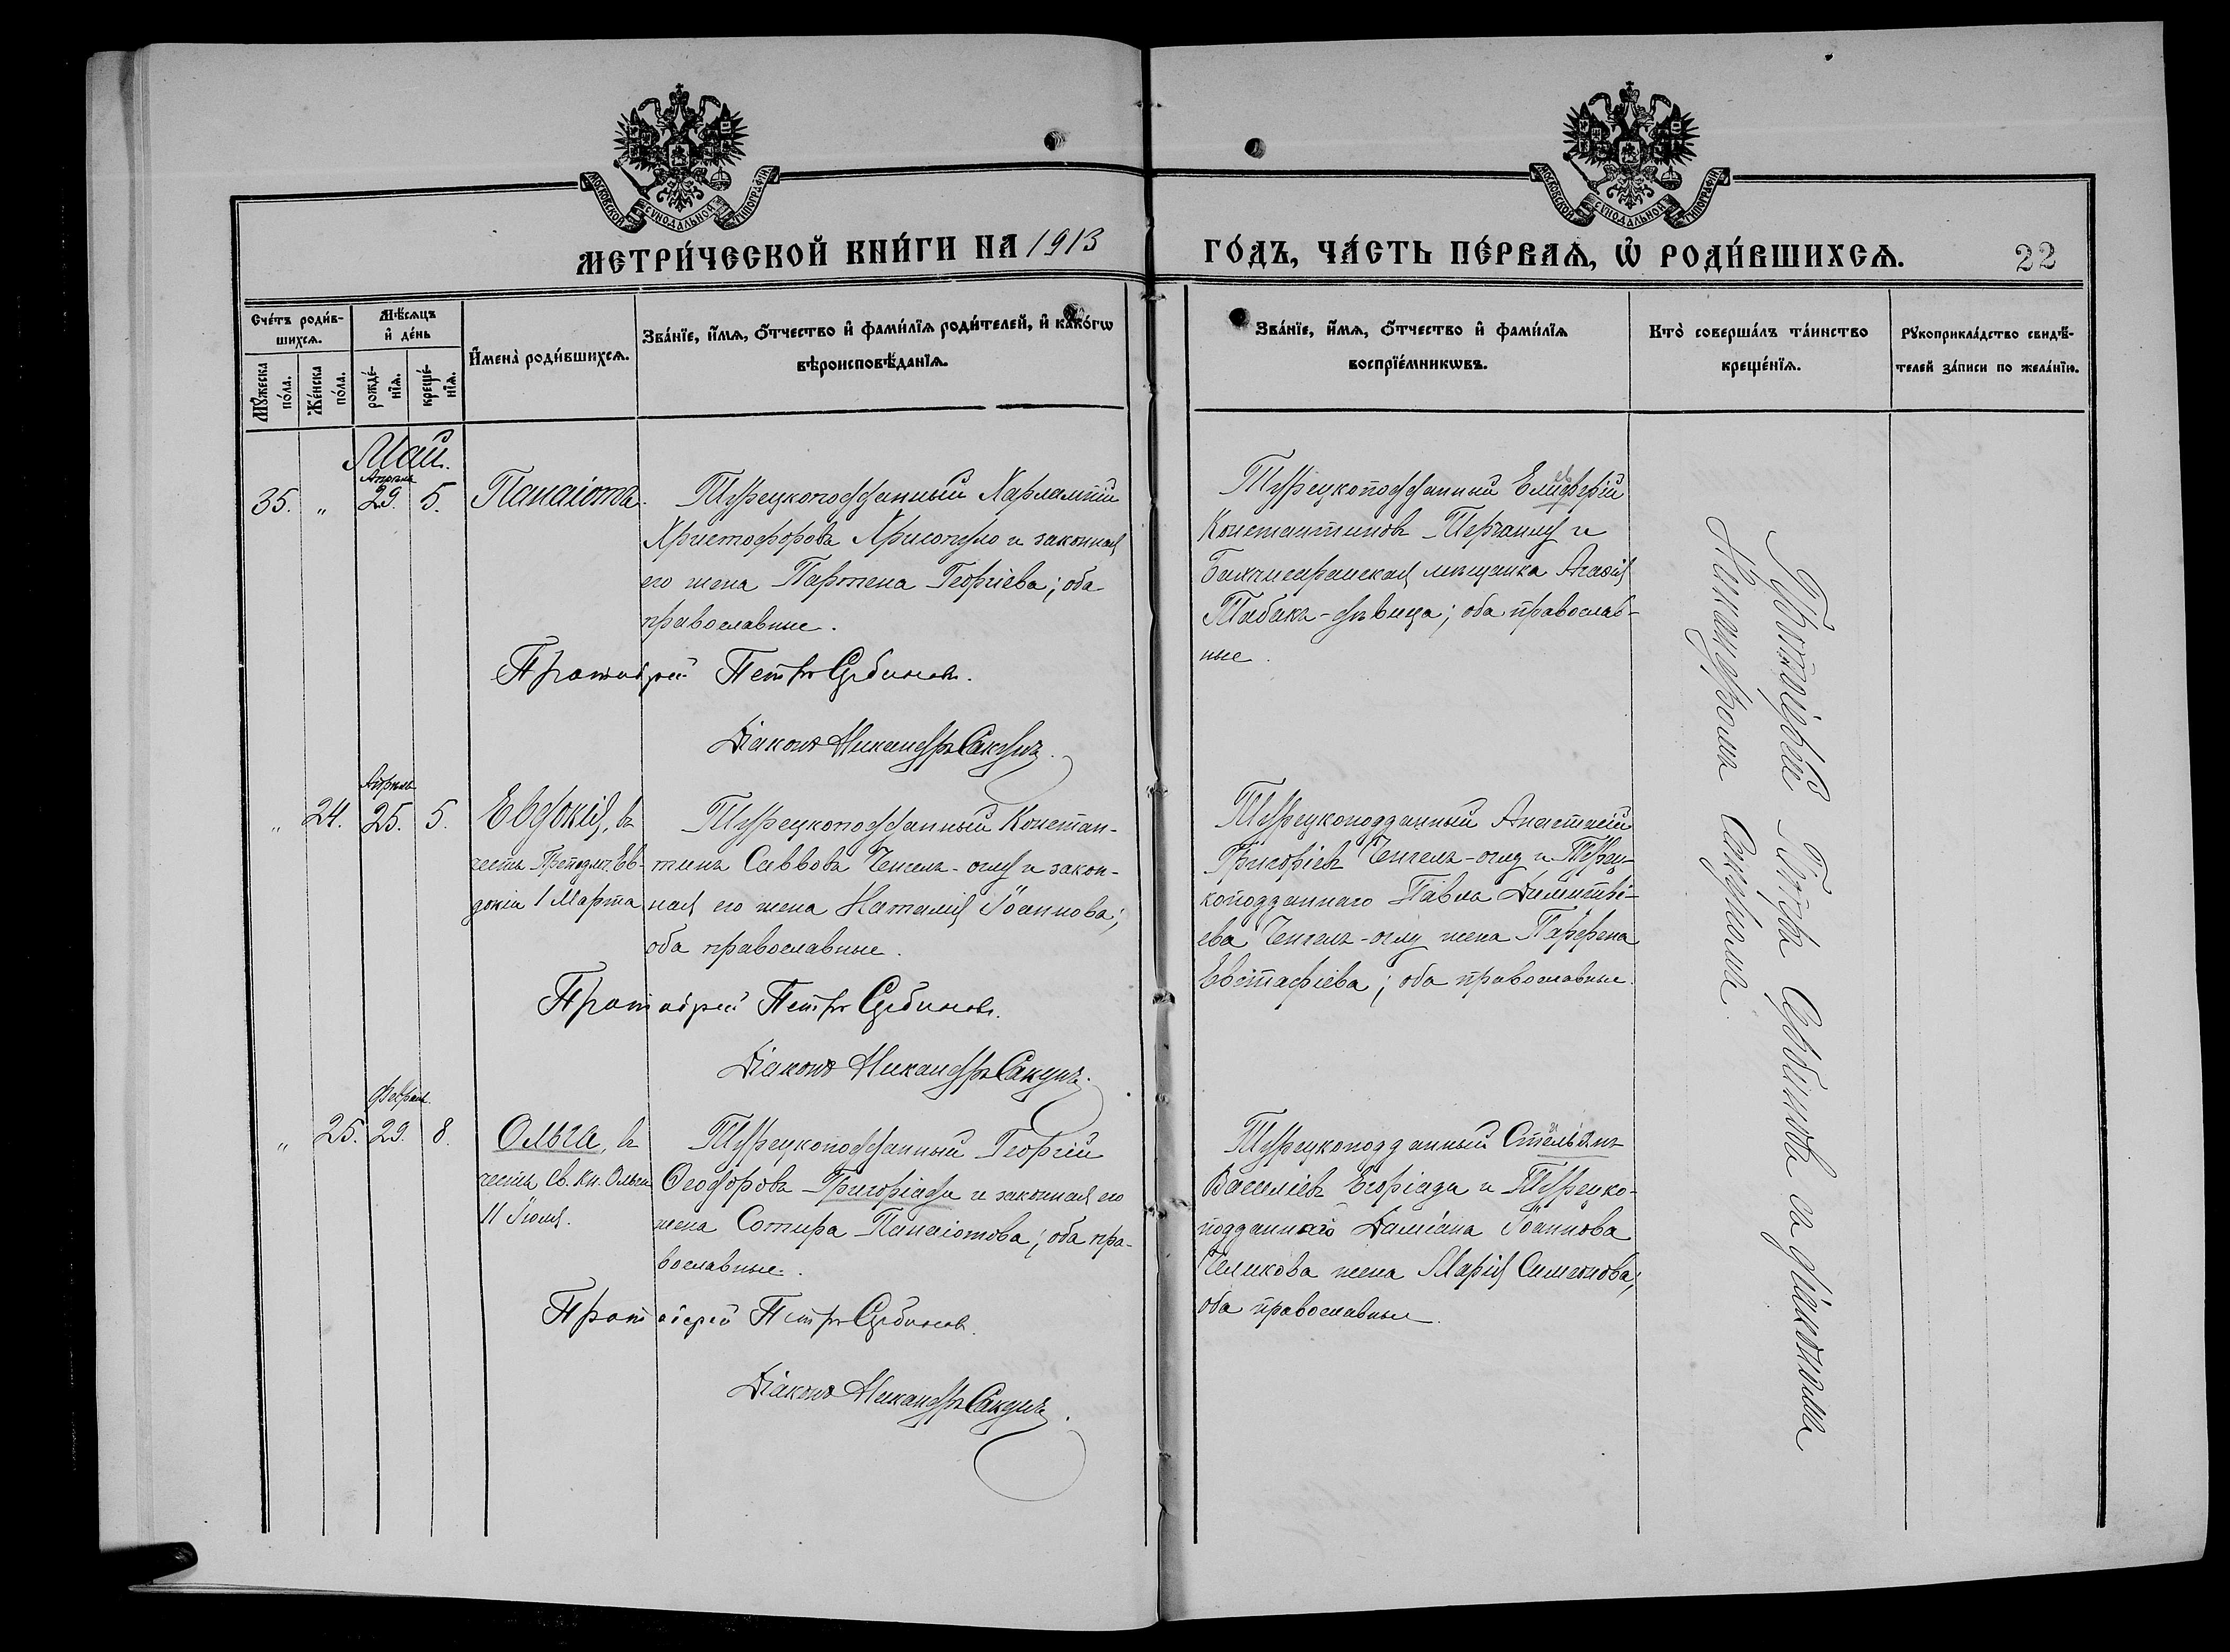 МОСКОВСКОЙ СѴНОДАЛЬНОЙ ТИПОГРАФІИ
МОСКОВСКОЙ СѴНОДАЛЬНОЙ ТИПОГРАФІИ
МЕТРИ́ЧЕСКОЙ КНИ́ГИ НА 1913
ГО́ДЪ, ЧА́СТЬ ПЕ́РВАѦ, Ѡ҆ РОДИ́ВШИХСѦ. 22
Сче́тъ роди́в-
шихсѧ.
Мꙋ́жеска
по́ла.
Же́нска
по́ла.
Мѣ́сѧцъ
и҆ де́нь
рожде́-
нїѧ.
креще́-
нїѧ.
И҆мена̀ роди́вшихсѧ.
Зва́нїе, и҆́мѧ, ѻ҆́тчество и҆ фами́лїѧ роди́телей, и҆ како́гѡ
вѣроисповѣ́данїѧ.
Зва́нїе, и҆́мѧ, ѻ҆́тчество и҆ фами́лїѧ
воспрїе́мникѡвъ.
Кто̀ соверша́лъ та́инство
креще́нїѧ.
Рꙋкоприкла́дство свидѣ́-
телей за́писи по жела́нїю.
Май.
Апрѣля
35. " 29. 5. Панаіотъ.
Турецкоподданный Харлампій
Христофоровъ Хрисопуло и законная
его жена Партена Георгіева; оба
православные.
Протоіерей Петръ Сербиновъ.
Діаконъ Никандръ Сакунъ.
Турецкоподданный Елиферій
Константиновъ и
Бахчисарайская мѣщанка Агафія
Табакъ-дѣвица; оба православ-
ные.
Апрѣль
" 24. 25. 5. Евдокія, въ
честь Преподмч. Ев-
докіи 1 Марта
Турецкоподданный Констан-
тинъ Саввовъ Ченгелъ-оглу и закон-
ная его жена Наталія Іоаннова;
оба православные.
Протоіерей Петръ Сербиновъ.
Діаконъ Никандръ Сакунъ.
Турецкоподданный Анастасій
Григоріевъ Ченгелъ-оглу и Турец-
коподданнаго Павла Димитрі-
ева Ченгелъ-оглу жена Парфена
Евстафіева; оба православные.
Февраль.
" 25. 29. 8. Ольга, въ
честь св. кн. Ольги
11 Іюля.
Турецкоподданный Георгій
Ѳеодоровъ Григоріади и законная его
жена Сотира Панаіотова; оба пра-
вославные.
Протоіерей Петръ Сербиновъ.
Діаконъ Никандръ Сакунъ.
Турецкоподданный Стельянъ
Василіевъ Егоріади и Турецко-
подданнаго Даміана Іоаннова
Челикова жена Марія Симеонова;
оба православные.
Протоіерей Петръ Сербиновъ съ діакономъ
Никандромъ Сакуномъ.